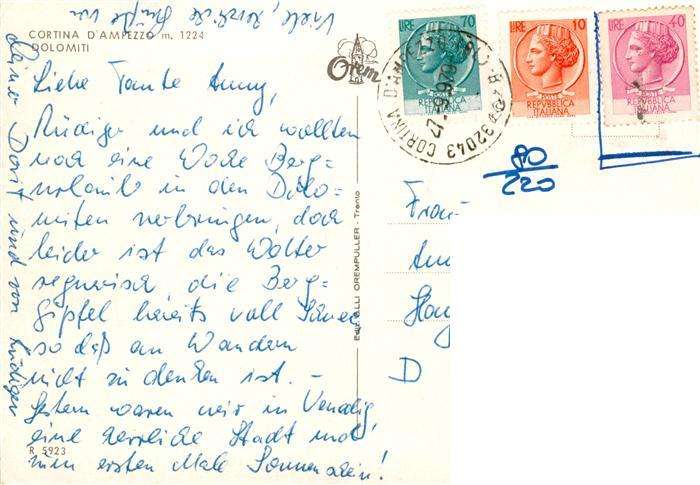 CORTINA D'AMPEZZO m. 1224
DOLOMITI
Liebe Tante Anny,
Rüdiger und ich wollten
noch eine Woche Berg=
urlaub in den Dolo=
miten verbringen, doch
leider ist das Wetter
regnerisch, die Berg=
gipfel bereits voll Schnee
so daß an Wandern
nicht zu denken ist. -
Gestern waren wir in Venedig,
eine herrliche Stadt und
zum ersten Male Sonnenschein!
Viele, herzliche Grüße von
Deiner Dorit und von Rüdiger
R 5923
Orem
Ediz. ALLI OREMPULLER - Trento
LIRE 70
REPVBBLICA
ITALIANA
LIRE 10
REPVBBLICA
ITALIANA
LIRE 40
REPVBBLICA
ITALIANA
32043 CORTINA D'AMPEZZO
-9.970
80
220
Frau
D